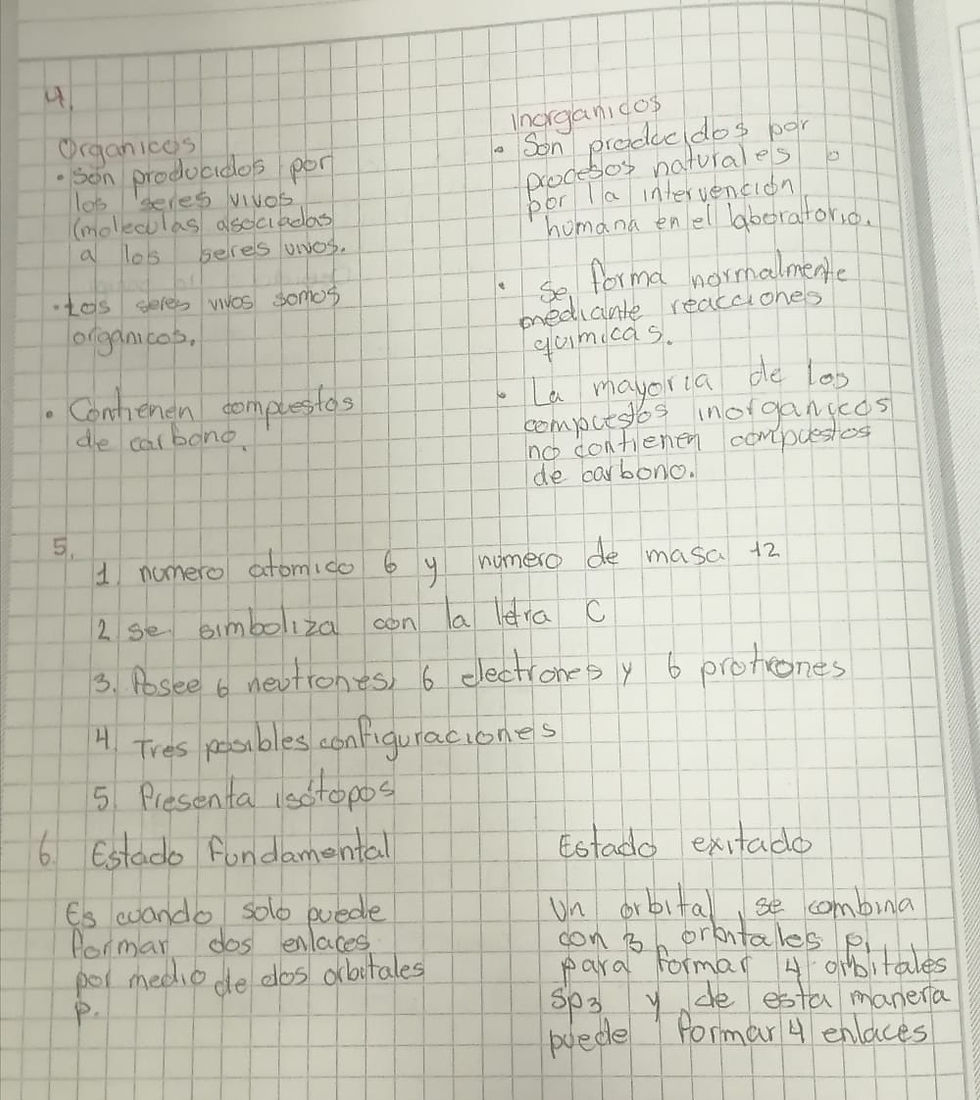 4.
Organicos
• Son producidos por
los seres vivos
(moleculas asociadas
a los seres vivos.
• Los seres vivos somos
organicos.
• Contienen compuestos
de carbono.
Inorganicos
• Son producidos por
procesos naturales o
por la intervención
humana en el laboratorio.
• Se forma normalmente
mediante reacciones
quimicas.
• La mayoria de los
compuestos inorganicos
no contienen compuestos
de carbono.
5.
1. numero atomico 6 y numero de masa 12
2 se simboliza con la letra C
3. Posee 6 neutrones, 6 electrones y 6 protrones
4. Tres posibles configuraciones
5. Presenta isótopos
6. Estado fundamental
Es cuando solo puede
formar dos enlaces
por medio de dos orbitales
p.
Estado exitado
Un orbital s se combina
con 3 orbitales p,
para formar 4 orbitales
sp3 y de esta manera
puede formar 4 enlaces